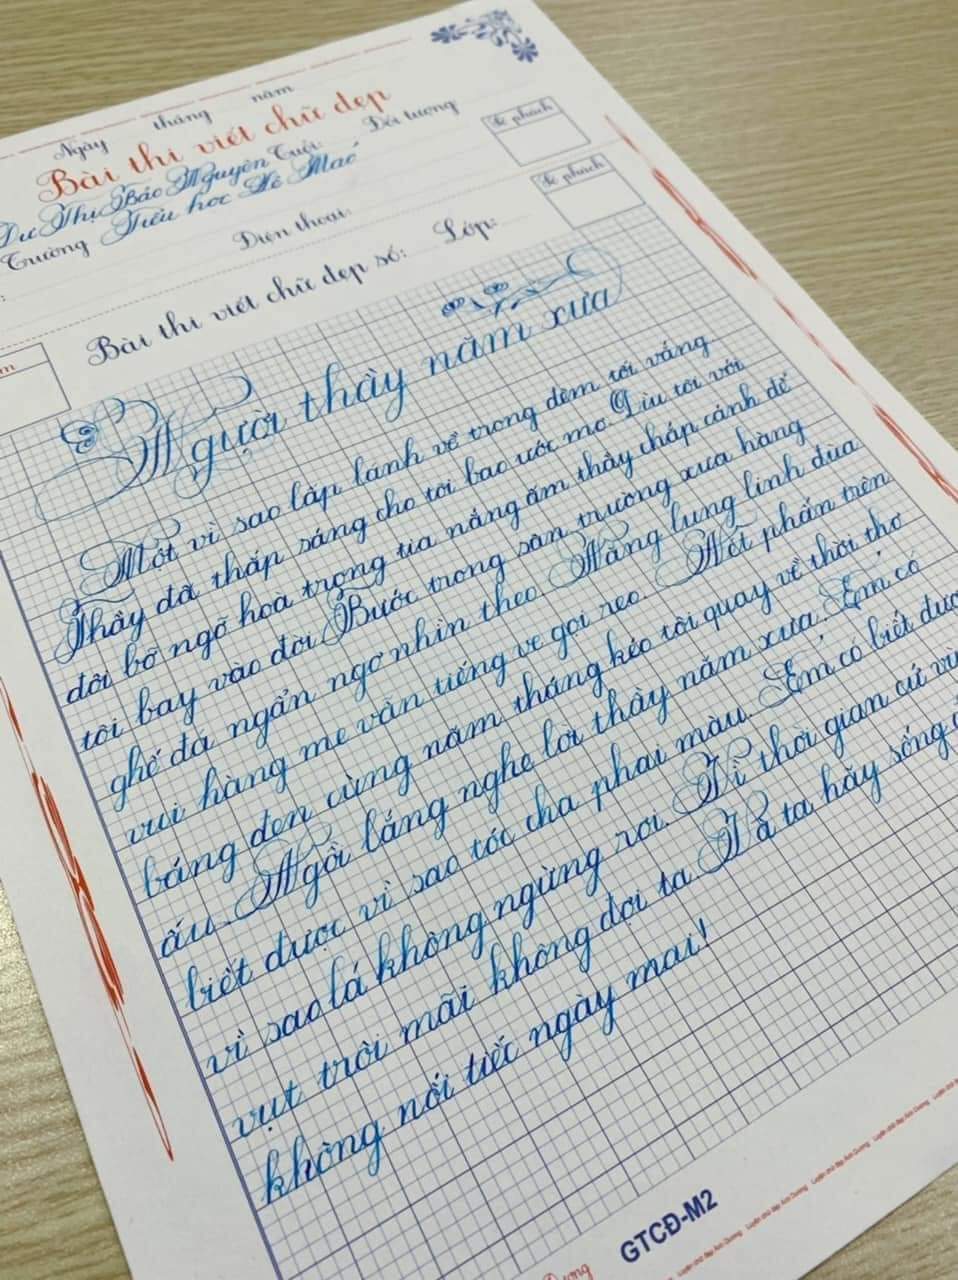 Ngày tháng năm
Bài thi viết chữ đẹp
Dư Thị Bảo Nguyên Tuổi: Đối tượng
Số phách
Trường Tiểu học Hồ Mac
Điện thoại: Lớp:
Số phách
Bài thi viết chữ đẹp số:
Người thầy năm xưa
Một vì sao lấp lánh về trong đêm tối vắng
Thầy đã thắp sáng cho tôi bao ước mơ. Dìu tôi với
đôi bỡ ngỡ hoà trong tia nắng ấm thầy chắp cánh để
tôi bay vào đời. Bước trong sân trường xưa hàng
ghế đá ngẩn ngơ nhìn theo. Nắng lung linh đùa
vui hàng me vẫn tiếng ve gọi reo. Nét phấn trên
bảng đen cùng năm tháng kéo tôi quay về thời thơ
ấu. Ngồi lắng nghe lời thầy năm xưa. Em có
biết được vì sao tóc cha phai màu. Em có biết đượ
vì sao lá không ngừng rơi. Vì thời gian cứ vù
vụt trôi mãi không đợi ta. Và ta hãy sống
không nối tiếc ngày mai!
GTCĐ-M2